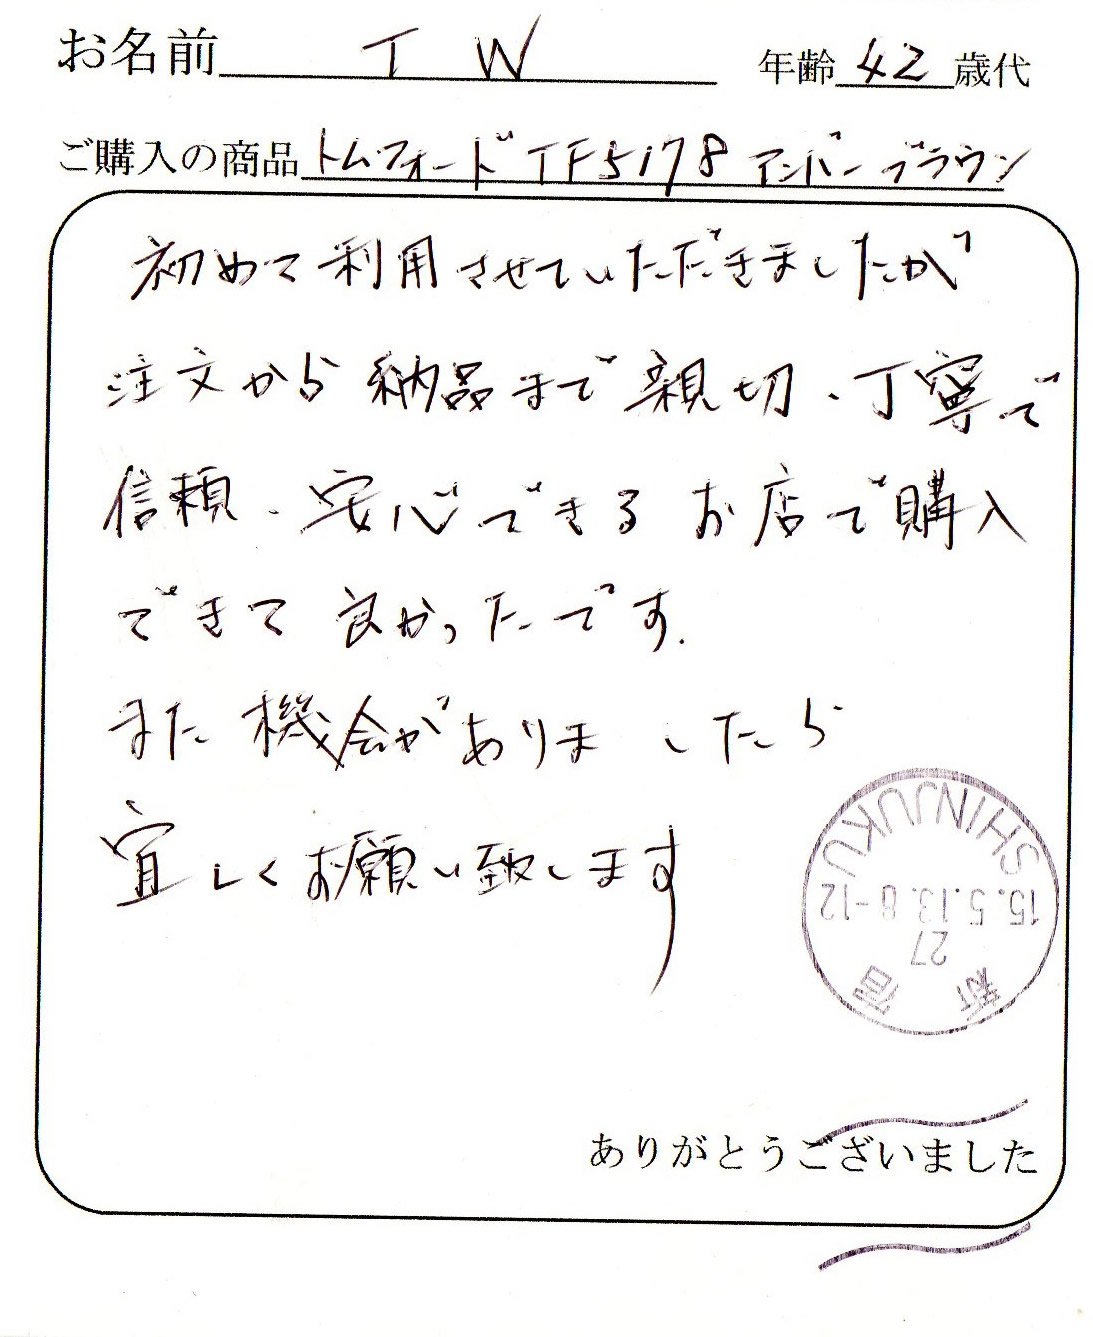 お名前 T W 年齢 42 歳代
ご購入の商品 トムフォード TF5178 アンバーブラウン
初めて利用させていただきましたが
注文から納品まで親切、丁寧で
信頼、安心できるお店で購入
できて良かったです.
また機会がありましたら
宜しくお願い致します
SHINJUKU
15.5.13 8-12
27
新宿
ありがとうございました